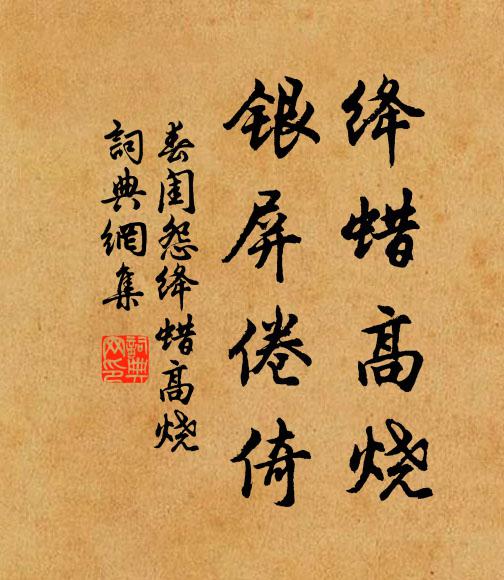 绛蜡高烧
银屏倦倚
春闺怨绛蜡高烧
詞典網集
詞典网印